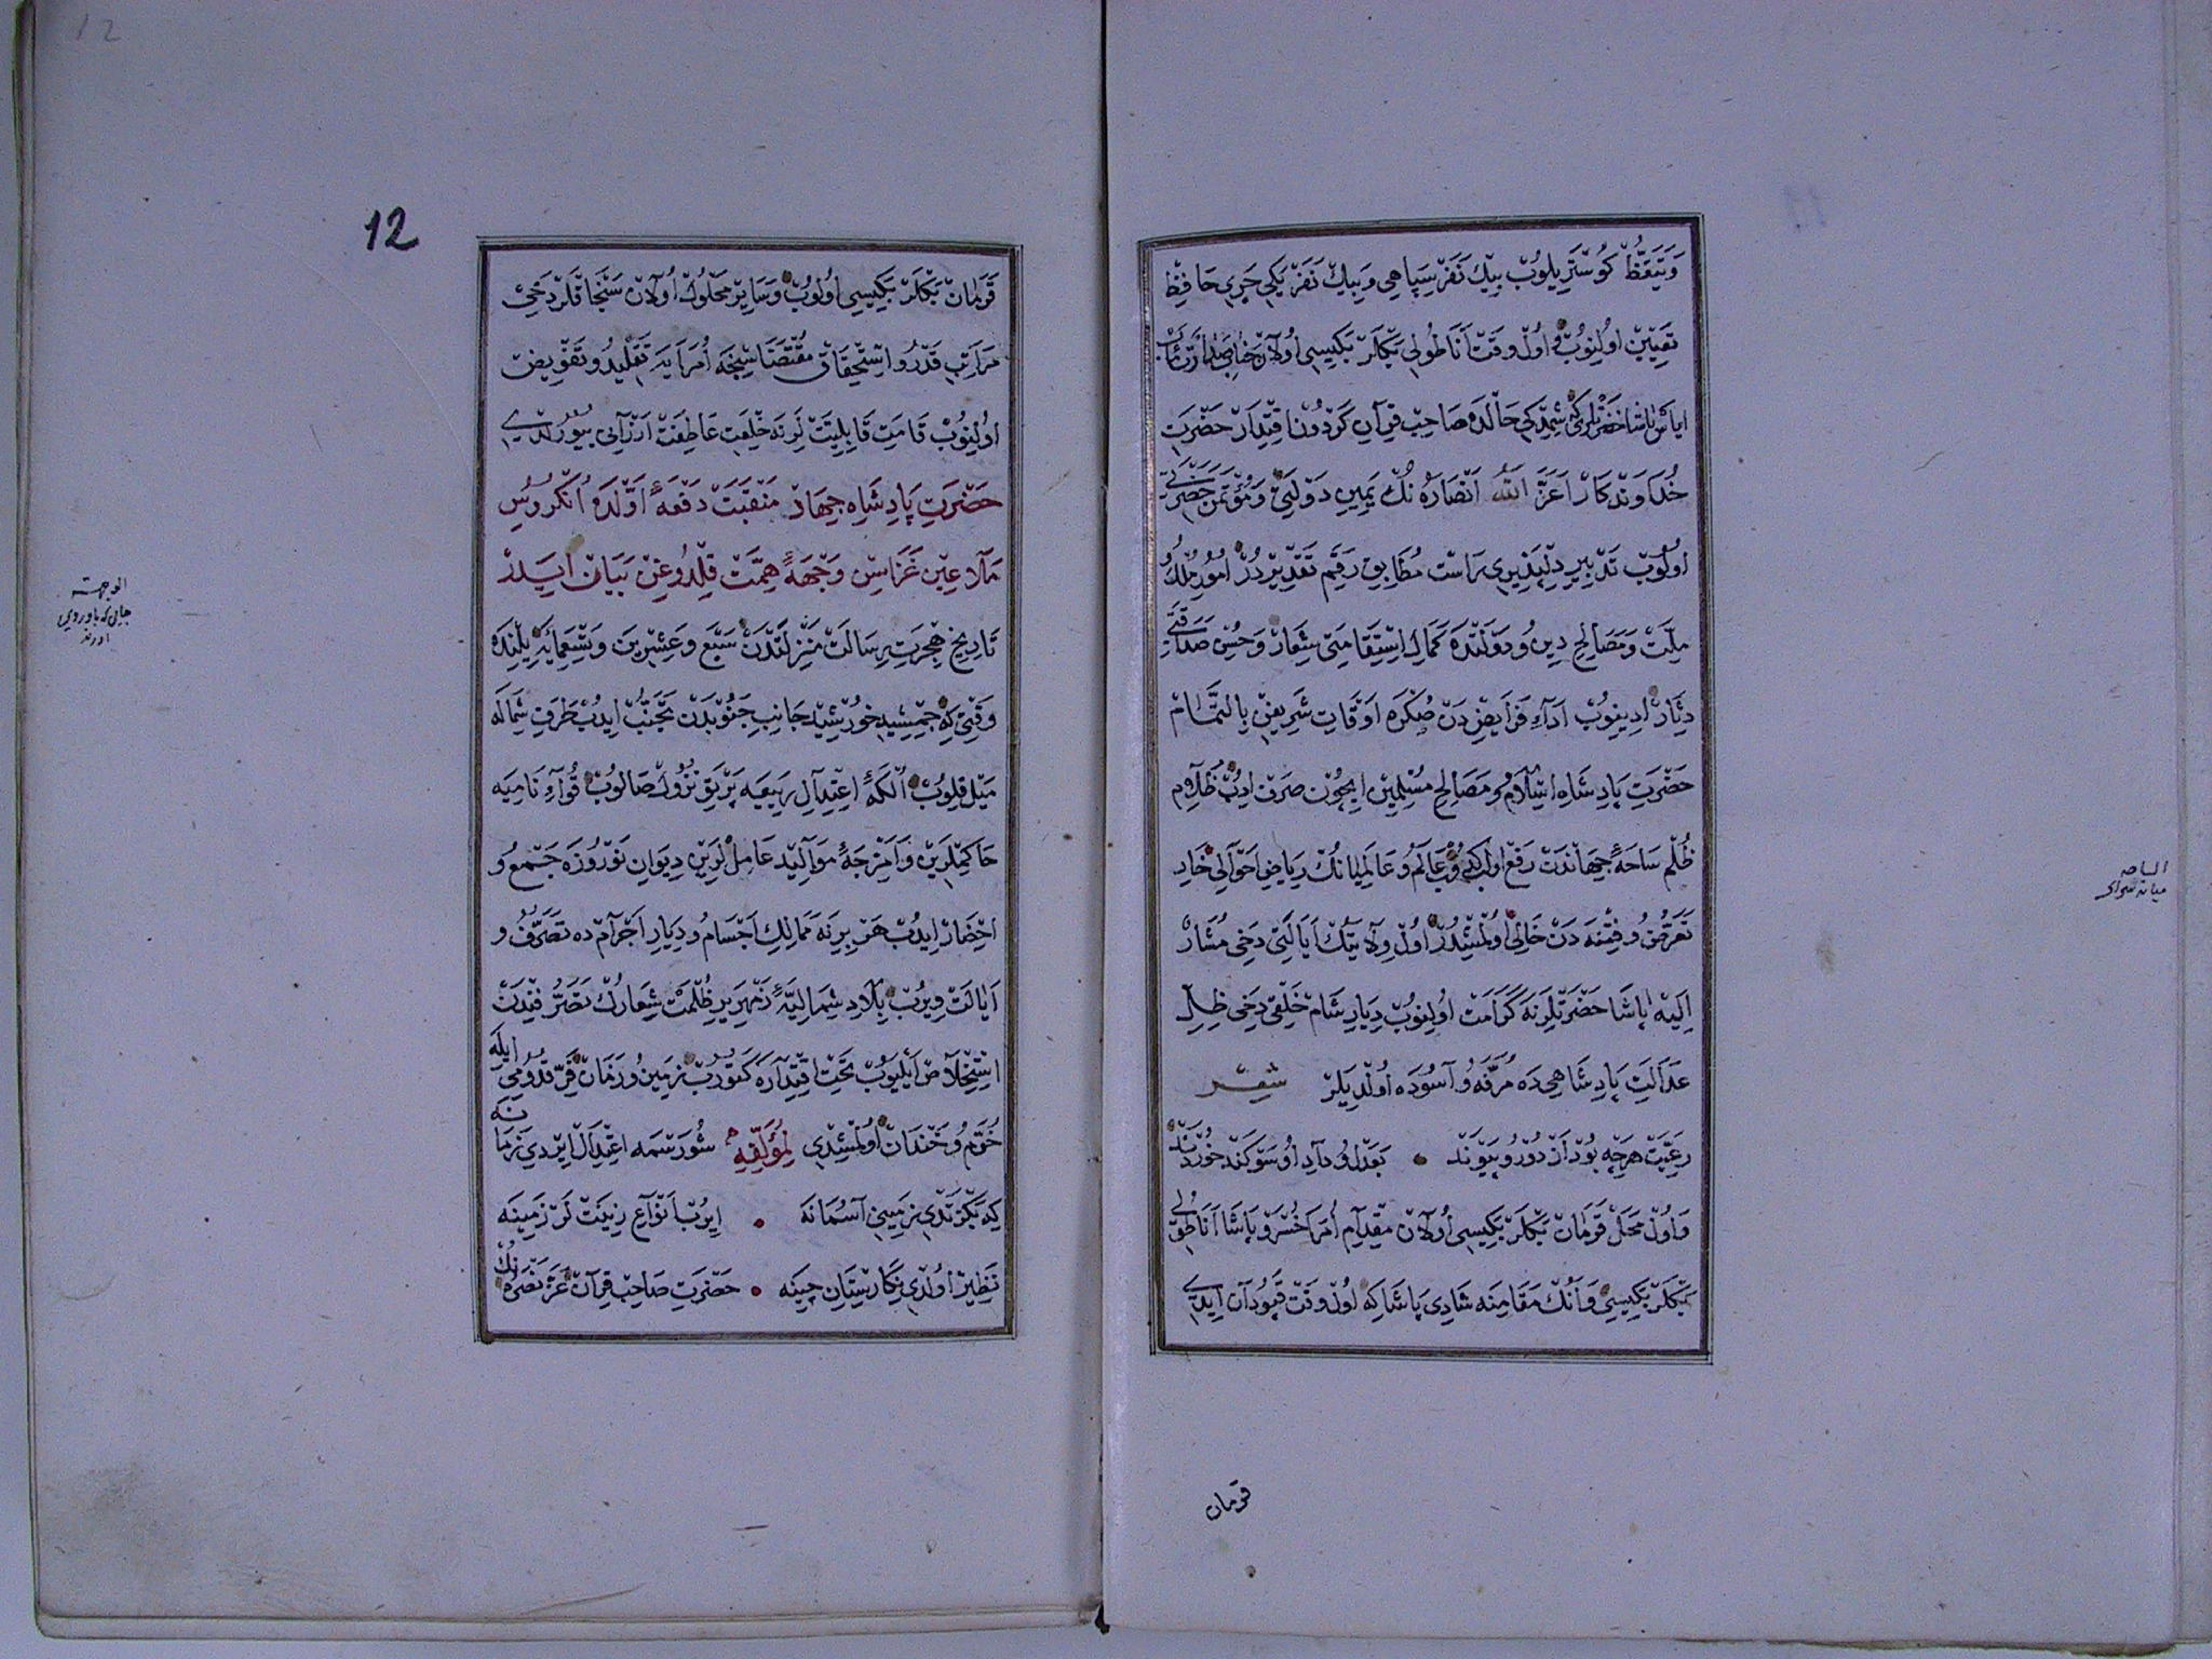 وتيقظ كوستريلوب بيك نفر سپاهى وبيك نفر يكيچرى حافظ
تعيين اولنوب اول وقت اناطولى بكلر بكيسى اولان جناب صدارتمآب
اياس پاشا حضرتلرى كه شمديكى حالده صاحب قران كردون اقتدار حضرت
خداوندكار اعز الله انصاره نك يمين دولتى ومؤتمن حضرتى
اولوب تدبير دلپذيرى راست مطابق رقم تقديردر امور ملك و
ملت ومصالح دين و دولتده كمال استقامتى شعار وحسن صداقتى
دثار ادينوب اداء فرايضدن صكره اوقات شريفن بالتمام
حضرت پادشاه اسلام و مصالح مسلمين ايچون صرف ايدوب ظلام
ظلم ساحهٔ جهاندن رفع اولوب عالم و عالميانك رياض احوالى خار
تعرض و فتنه دن خالى اولمشدر اول ولايتك ايالتى دخى مشار
اليه پاشا حضرتلرنه كرامت اولنوب ديار شام خلقى دخى ظل
عدالت پادشاهى ده مرفه و آسوده اولديلر شعر
رعيت هرچه بود از دور و پيوند • بعدل و داد او سوكند خوردند
واول محل قرمان بكلر بكيسى اولان مقدام امرا خسرو پاشا اناطولى
بكلر بكيسى وانك مقامنه شادى پاشا كه اول وقت قپودان ايدى
قرمان
12
12
قرمان بكلر بكيسى اولوب وساير محلول اولان سنجاقلر دخى
مراتب قدر و استحقاق مقتضاسنجه امرايه تقليد و تفويض
اولنوب قامت قابليتلرنه خلعت عاطفت ارزانى بيورلدى
حضرت پادشاه جهان منقبت دفعهٔ اولده انكروس
ملاعين غزاسن وجههٔ همت قلدوغن بيان ايدر
تاريخ هجرت رسالت منزلتدن سبع وعشرين وتسعمايه يلنده
وقتى كه جمشيد خورشيد جانب جنوبدن تجنب ايدوب طرف شماله
ميل قلوب الكهٔ اعتدال ربيعيه پرتو نزول صالوب قواء ناميه
حاكملرين و امزجهٔ مواليد عاملرين ديوان نوروزه جمع و
احضار ايدوب هر برنه ممالك اجسام و ديار اجرامده تصرف و
ايالت ويروب بلاد شماليهٔ زمهرير ظلمت شعارك تصرفندن
استخلاص ايليوب تحت اقتداره كتوروب زمين و زمان فر قدومى ايله
خرم و خندان اولمشدى لمؤلفه شو رسمه اعتدال ايردى زمانه
كه بكزتدى زمينى آسمانه • ايروب انواع زينتلر زمينه
نظير اولدى نكارستان چينه • حضرت صاحب قران عز نصره نك